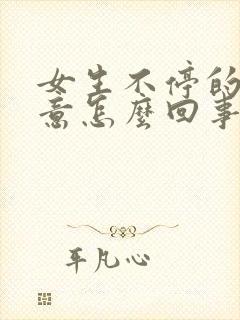 女生不停的
意怎麼回事
平凡心